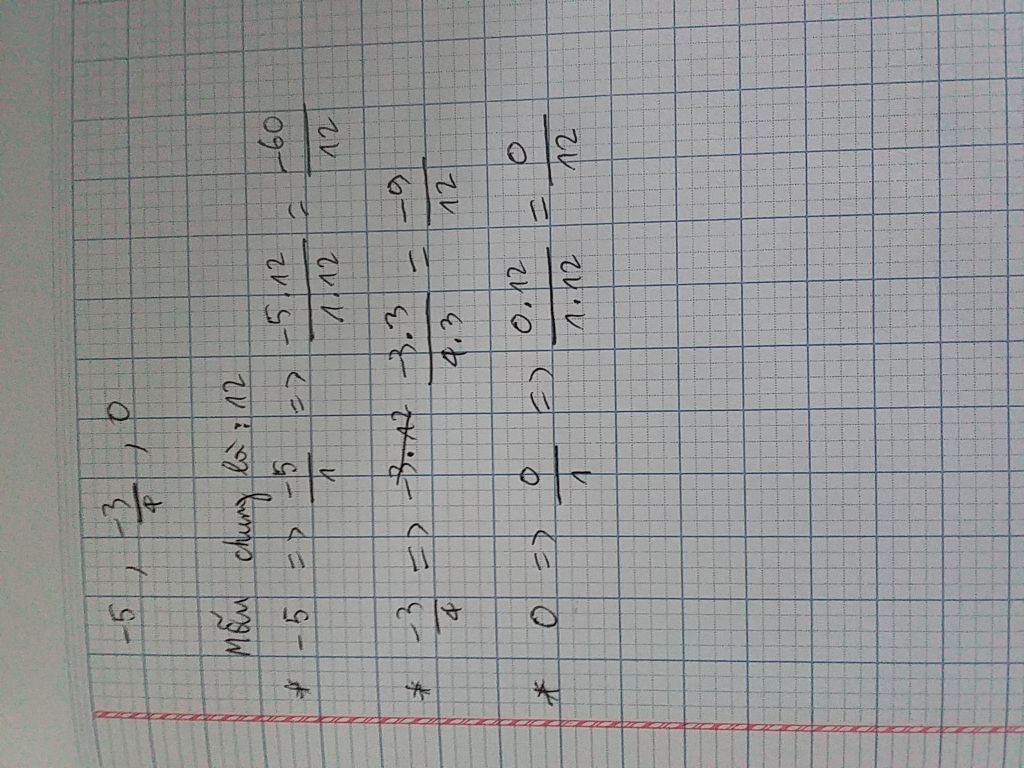 -5 , -3/4 , 0
Mẫu chung là : 12
* -5 => -5/1 => -5.12/1.12 = -60/12
* -3/4 => -3.12 -3.3/4.3 = -9/12
* 0 => 0/1 => 0.12/1.12 = 0/12